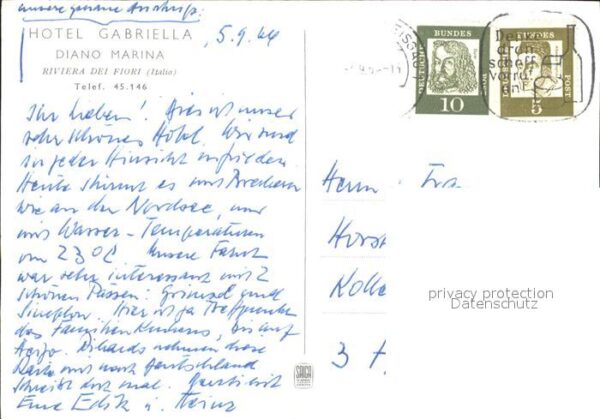 unsere genaue Anschrift:
HOTEL GABRIELLA
DIANO MARINA
RIVIERA DEI FIORI (Italia)
Telef. 45.146
5.9.64
Ihr Lieben! Dies ist unser
sehr schönes Hotel. Wir sind
in jeder Hinsicht zufrieden.
Heute stürmt es mit Brechern
wie an der Nordsee, nur
mit Wasser-Temperaturen
von 23°C. Unsere Fahrt
war sehr interessant mit 2
schönen Pässen: Grimsel und
Simplon. Hier ist ja Treffpunkt
des Familien
nehmen diese
Karte mit nach Deutschland
Schreibt doch mal.
Eure Edith u. Heinz
DEUTSCHE BUNDESPOST
10
DEUTSCHE BUNDESPOST
5
Herrn
Horst
3
privacy protection
Datenschutz